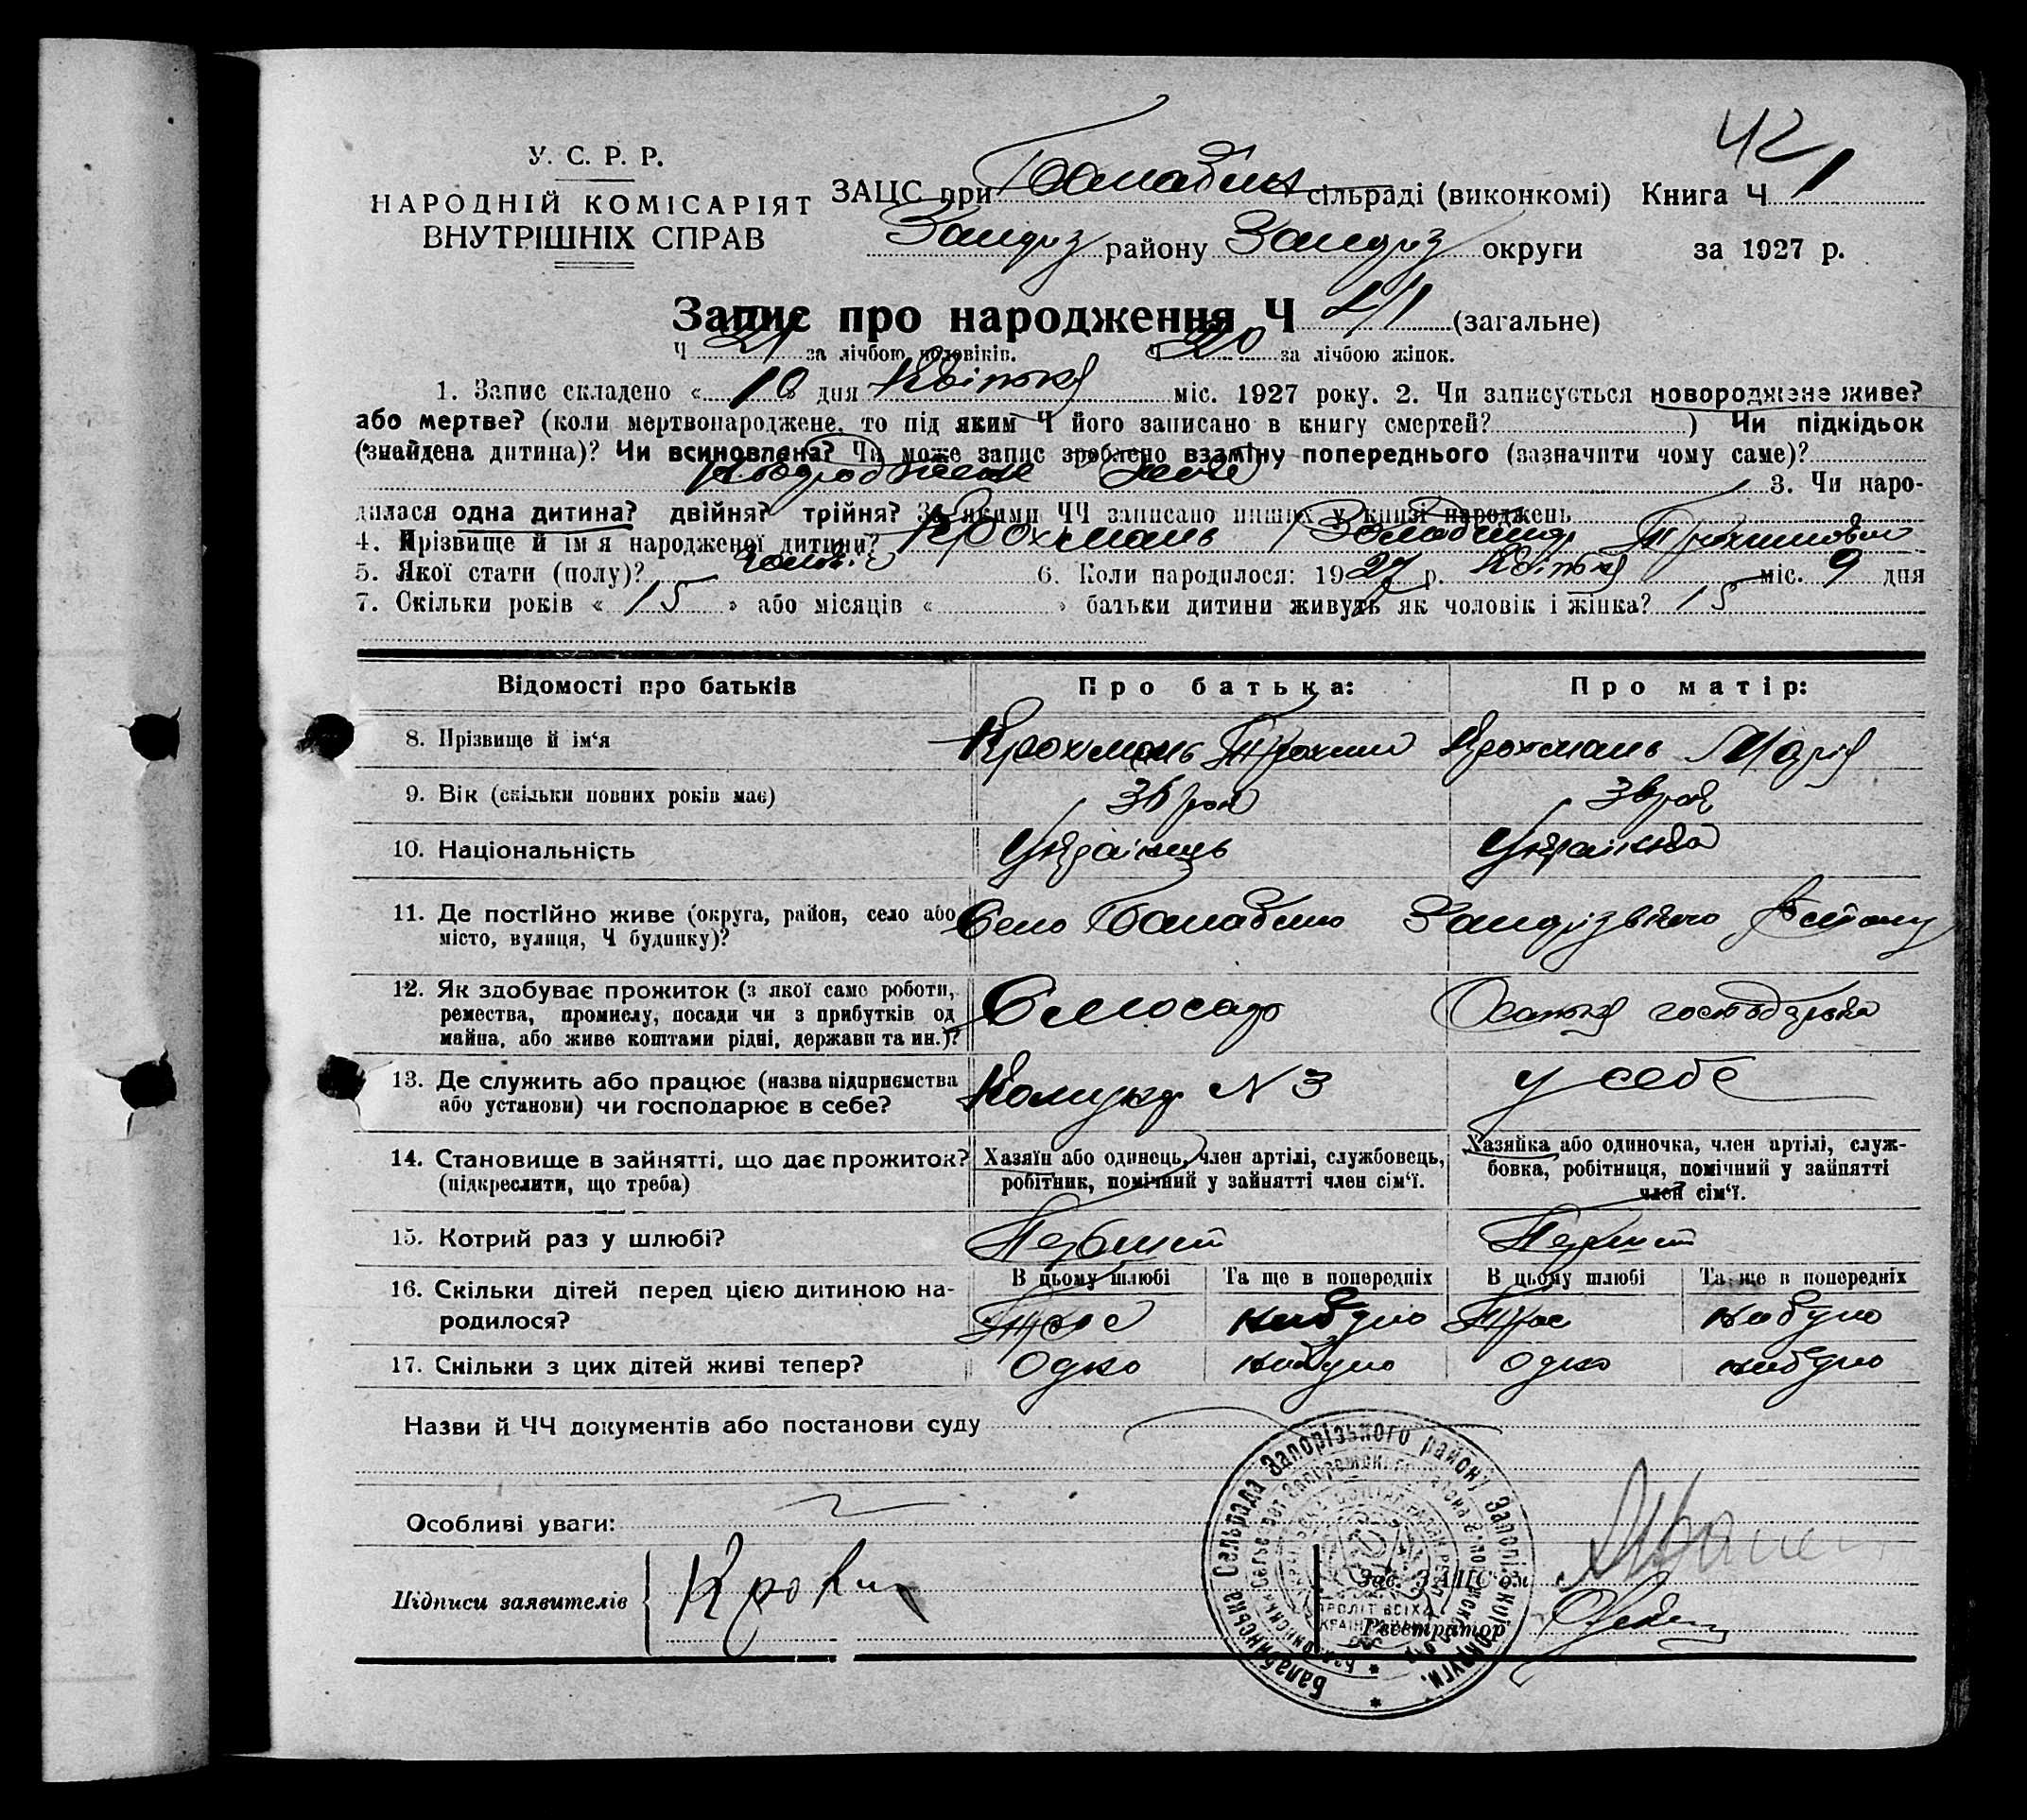 421
У. С. Р. Р.
НАРОДНІЙ КОМІСАРІЯТ
ВНУТРІШНІХ СПРАВ
ЗАЦС при Балабин сільраді (виконкомі) Книга Ч 1
Запоріз району Запоріз округи за 1927 р.
Запис про народження Ч 41 (загальне)
Ч 21 за лічбою чоловіків. Ч 20 за лічбою жінок.
1. Запис складено « 10 » дня Квітня міс. 1927 року. 2. Чи записується новороджене живе?
або мертве? (коли мертвонароджене, то під яким Ч його записано в книгу смертей? ) Чи підкідьок
(знайдена дитина)? Чи всиновлена? Чи може запис зроблено взаміну попереднього (зазначити чому саме)?
3. Чи наро-
дилася одна дитина? двійня? трійня? За якими ЧЧ записано инших у книзі народжень
4. Прізвище й ім'я народженої дитини? Крохмаль Володимир Трохимович
5. Якої стати (полу)? чолов. 6. Коли народилося: 1927 р. Квітня міс. 9 дня
7. Скільки років « 15 » або місяців « » батьки дитини живуть як чоловік і жінка? 15
Відомості про батьків Про батька: Про матір:
8. Прізвище й ім'я Крохмаль Трохим Крохмаль Марія
9. Вік (скільки повних років має) 36 рок 36 рок
10. Національність Українець Українка
11. Де постійно живе (округа, район, село або Село Балабино Запорізького
місто, вулиця, Ч будинку)?
12. Як здобуває прожиток (з якої само роботи, Слюсар Хатня господарка
ремества, промислу, посади чи з прибутків од
майна, або живе коштами рідні, держави та ин.)?
13. Де служить або працює (назва підприємства Комунар N 3 у себе
або установи) чи господарює в себе?
14. Становище в зайнятті, що дає прожиток? Хазяїн або одинець, член артілі, службовець, Хазяйка або одиночка, член артілі, служ-
(підкреслити, що треба) робітник, помічний у зайнятті член сім'ї. бовка, робітниця, помічний у зайнятті
член сім'ї.
15. Котрий раз у шлюбі? Первий Первий
16. Скільки дітей перед цією дитиною на- В цьому шлюбі Та ще в попередніх В цьому шлюбі Та ще в попередніх
родилося? Троє небуло Троє небуло
17. Скільки з цих дітей живі тепер? Одно небуло одно небуло
Назви й ЧЧ документів або постанови суду
Особливі уваги:
Підписи заявителів
Зав. ЗАЦС'ом
Реєстратор
Балабинська Сельрада Запорізького району Запорізької Округи.